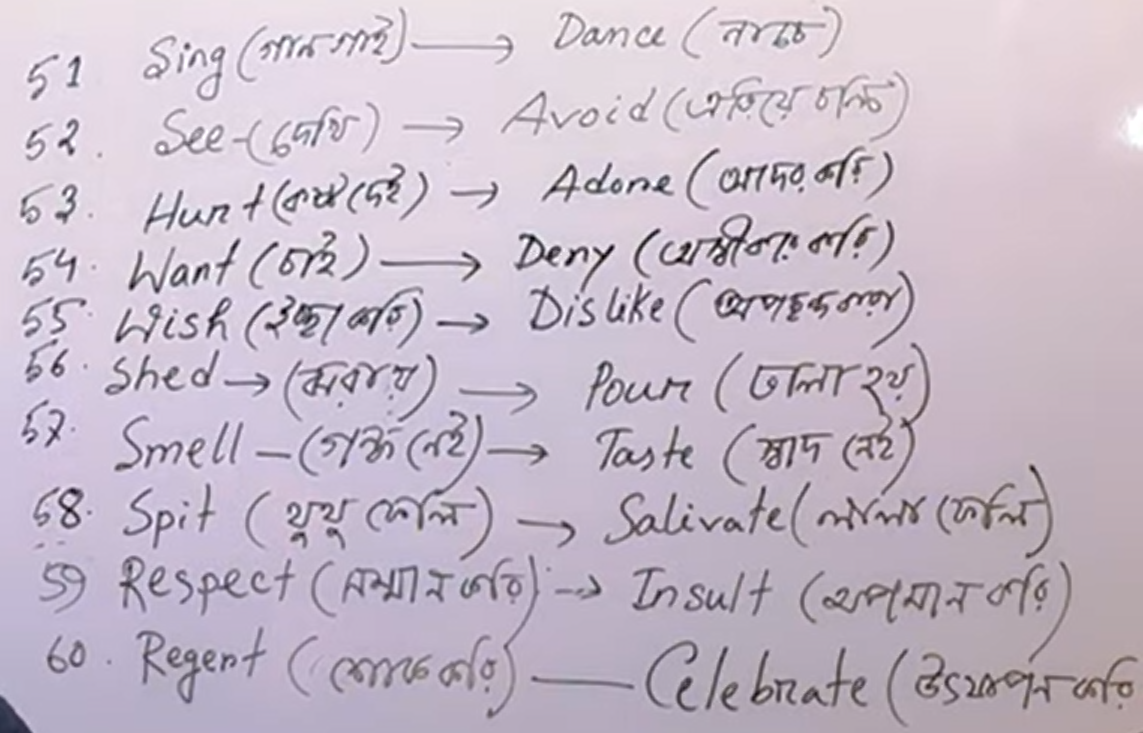 51 Sing (গান গাই) → Dance (নাচি)
52. See - (দেখি) → Avoid (এরিয়ে চলি)
53. Hurt (কষ্ট দেই) → Adore (আদর করি)
54. Want (চাই) → Deny (অস্বীকার করি)
55. Wish (ইচ্ছা করি) → Dislike (অপছন্দ করা)
56. Shed → (ঝরায়) → Pour (ঢালা হয়)
57. Smell - (গন্ধ নেই) → Taste (স্বাদ নেই)
58. Spit (থুথু ফেলি) → Salivate (লালা ফেলি)
59 Respect (সম্মান করি) → Insult (অপমান করি)
60. Regent (শোক করি) — Celebrate (উৎযাপন করি